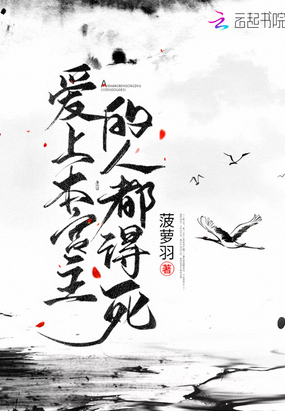 云起书院
爱上本宫主
的人都得死
菠萝羽
著